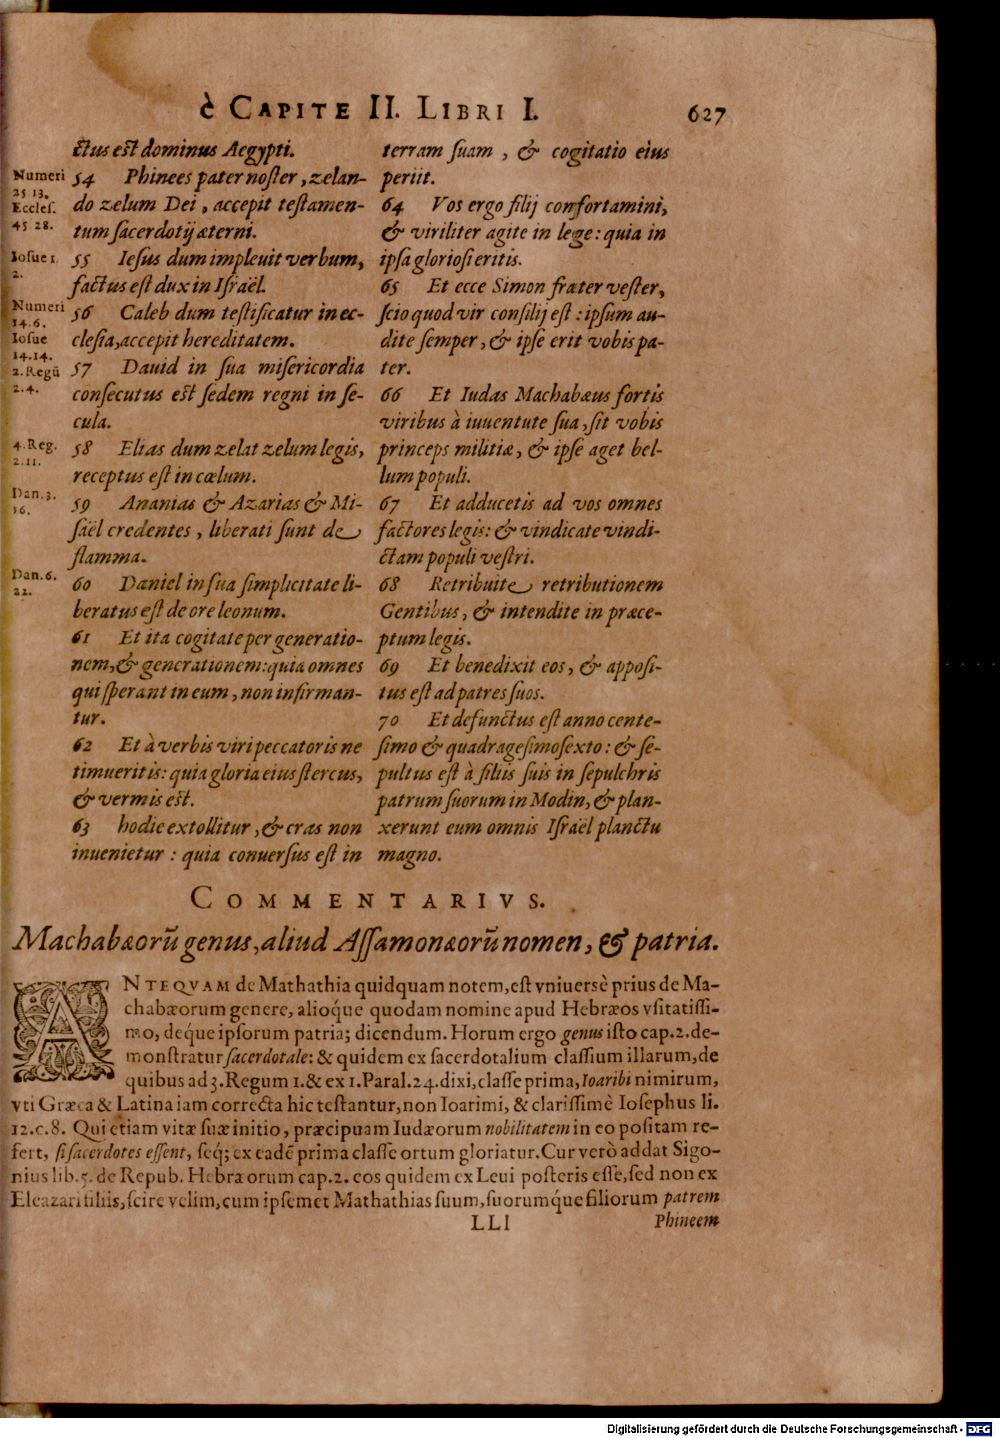 è CAPITE II. LIBRI I. 627
ctus est dominus Aegypti.
54 Phinees pater noster, zelan-
do zelum Dei, accepit testamen-
tum sacerdotij æterni.
55 Iesus dum impleuit verbum,
factus est dux in Israël.
56 Caleb dum testificatur in ec-
clesia, accepit hereditatem.
57 Dauid in sua misericordia
consecutus est sedem regni in se-
cula.
58 Elias dum zelat zelum legis,
receptus est in cœlum.
59 Ananias & Azarias & Mi-
saël credentes, liberati sunt de
flamma.
60 Daniel in sua simplicitate li-
beratus est de ore leonum.
61 Et ita cogitate per generatio-
nem, & generationem: quia omnes
qui sperant in eum, non infirman-
tur.
62 Et à verbis viri peccatoris ne
timueritis: quia gloria eius stercus,
& vermis est.
63 hodie extollitur, & cras non
inuenietur : quia conuersus est in
Numeri
25 13.
Eccles.
45 28.
Iosue 1.
2.
Numeri
14.6.
Iosue
14.14.
2.Regũ
2.4.
4.Reg.
2.11.
Dan.3.
16.
Dan.6.
22.
terram suam , & cogitatio eius
periit.
64 Vos ergo filij confortamini,
& viriliter agite in lege: quia in
ipsa gloriosi eritis.
65 Et ecce Simon frater vester,
scio quod vir consilij est : ipsum au-
dite semper, & ipse erit vobis pa-
ter.
66 Et Iudas Machabæus fortis
viribus à iuuentute sua, sit vobis
princeps militiæ, & ipse aget bel-
lum populi.
67 Et adducetis ad vos omnes
factores legis: & vindicate vindi-
ctam populi vestri.
68 Retribuite retributionem
Gentibus, & intendite in præce-
ptum legis.
69 Et benedixit eos, & apposi-
tus est ad patres suos.
70 Et defunctus est anno cente-
simo & quadragesimo sexto: & se-
pultus est à filiis suis in sepulchris
patrum suorum in Modin, & plan-
xerunt eum omnis Israël planctu
magno.
COMMENTARIVS.
Machabæorũ genus, aliud Assamonæorũ nomen, & patria.
ANTEQVAM de Mathathia quidquam notem, est vniuersè prius de Ma-
chabæorum genere, alioq́ue quodam nomine apud Hebræos vsitatissi-
mo, deque ipsorum patria; dicendum. Horum ergo genus isto cap.2. de-
monstratur sacerdotale: & quidem ex sacerdotalium classium illarum, de
quibus ad 3. Regum 1. & ex 1. Paral. 24. dixi, classe prima, Ioaribi nimirum,
vti Græca & Latina iam correcta hic testantur, non Ioarimi, & clarissimè Iosephus li.
12.c.8. Qui etiam vitæ suæ initio, præcipuam Iudæorum nobilitatem in eo positam re-
fert, si sacerdotes essent, seq́; ex eadẽ prima classe ortum gloriatur. Cur verò addat Sigo-
nius lib.5. de Repub. Hebræorum cap.2. eos quidem ex Leui posteris esse, sed non ex
Eleazari filiis, scire velim, cum ipsemet Mathathias suum, suorumque filiorum patrem
LLl Phineem
Digitalisierung gefördert durch die Deutsche Forschungsgemeinschaft - DFG